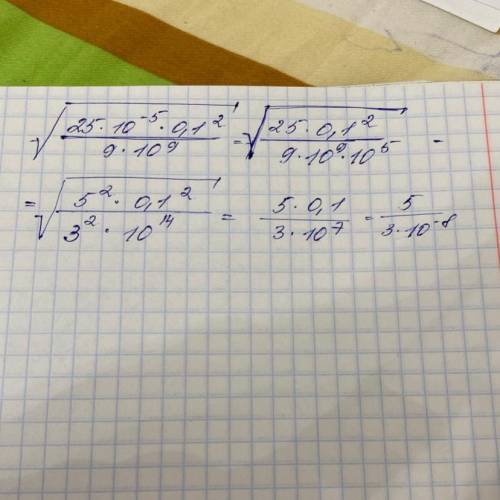 √(25·10⁻⁵·0,1² / 9·10⁹) = √(25·0,1² / 9·10⁹·10⁵) =
= √(5²·0,1² / 3²·10¹⁴) = 5·0,1 / 3·10⁷ = 5 / 3·10⁻⁸